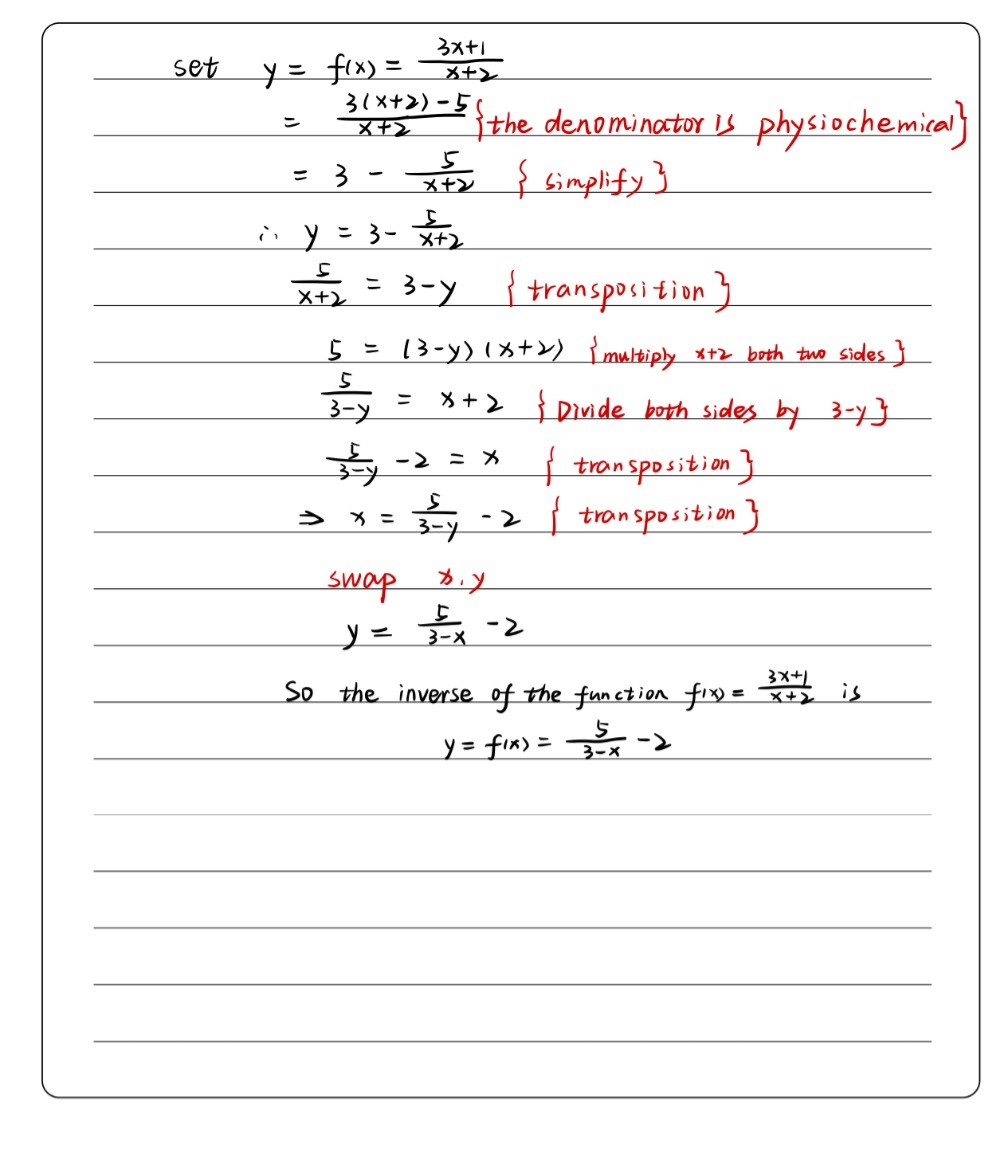 set y = f(x) = \frac{3x+1}{x+2}
= \frac{3(x+2)-5}{x+2} {the denominator is physiochemical}
= 3 - \frac{5}{x+2} { simplify }
∴ y = 3 - \frac{5}{x+2}
\frac{5}{x+2} = 3-y { transposition }
5 = (3-y)(x+2) { multiply x+2 both two sides }
\frac{5}{3-y} = x+2 { Divide both sides by 3-y }
\frac{5}{3-y} -2 = x { transposition }
⇒ x = \frac{5}{3-y} -2 { transposition }
swap x, y
y = \frac{5}{3-x} -2
So the inverse of the function f(x) = \frac{3x+1}{x+2} is
y = f(x) = \frac{5}{3-x} -2